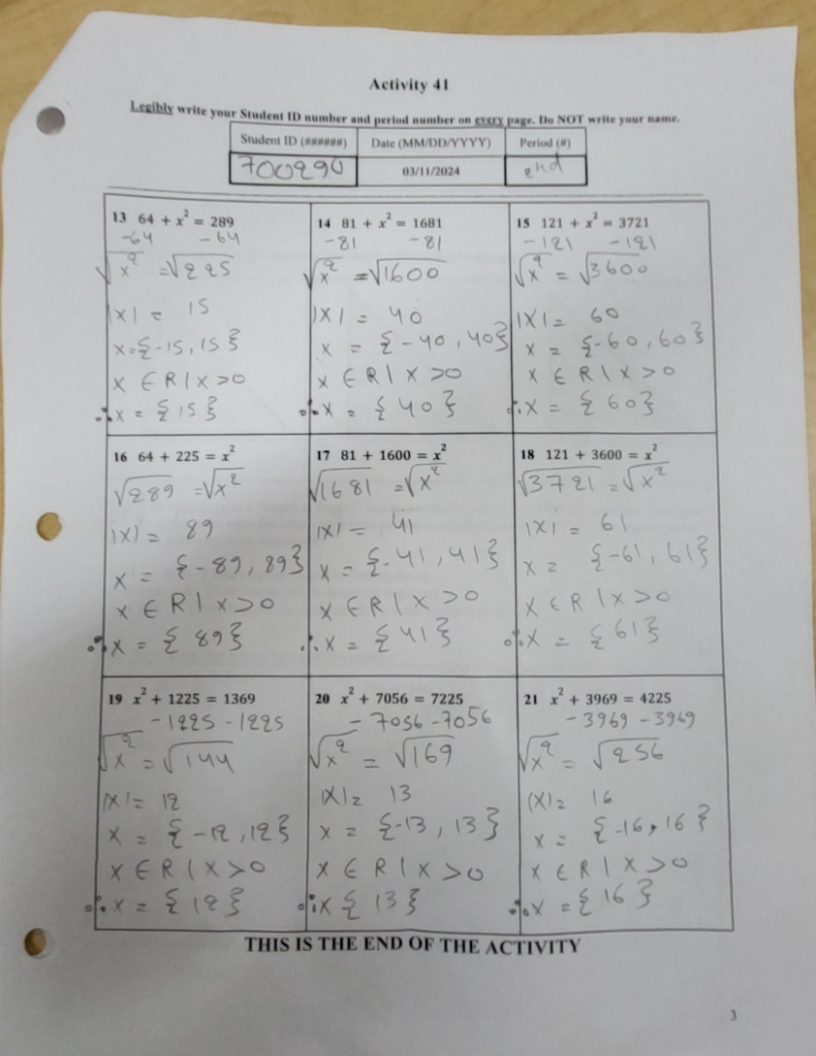 Activity 41
Legibly write your Student ID number and period number on every page. Do NOT write your name.
Student ID (######) Date (MM/DD/YYYY) Period (#)
700290 03/11/2024 2nd
13 64 + x² = 289
-64 -64
√x² = √225
|x| = 15
x = {-15, 15}
x ∈ R | x > 0
∴ x = {15}
14 81 + x² = 1681
-81 -81
√x² = √1600
|x| = 40
x = {-40, 40}
x ∈ R | x > 0
∴ x = {40}
15 121 + x² = 3721
-121 -121
√x² = √3600
|x| = 60
x = {-60, 60}
x ∈ R | x > 0
∴ x = {60}
16 64 + 225 = x²
√289 = √x²
|x| = 89
x = {-89, 89}
x ∈ R | x > 0
∴ x = {89}
17 81 + 1600 = x²
√1681 = √x²
|x| = 41
x = {-41, 41}
x ∈ R | x > 0
∴ x = {41}
18 121 + 3600 = x²
√3721 = √x²
|x| = 61
x = {-61, 61}
x ∈ R | x > 0
∴ x = {61}
19 x² + 1225 = 1369
-1225 -1225
√x² = √144
|x| = 12
x = {-12, 12}
x ∈ R | x > 0
∴ x = {12}
20 x² + 7056 = 7225
-7056 -7056
√x² = √169
|x| = 13
x = {-13, 13}
x ∈ R | x > 0
∴ x {13}
21 x² + 3969 = 4225
-3969 -3969
√x² = √256
|x| = 16
x = {-16, 16}
x ∈ R | x > 0
∴ x = {16}
THIS IS THE END OF THE ACTIVITY
3